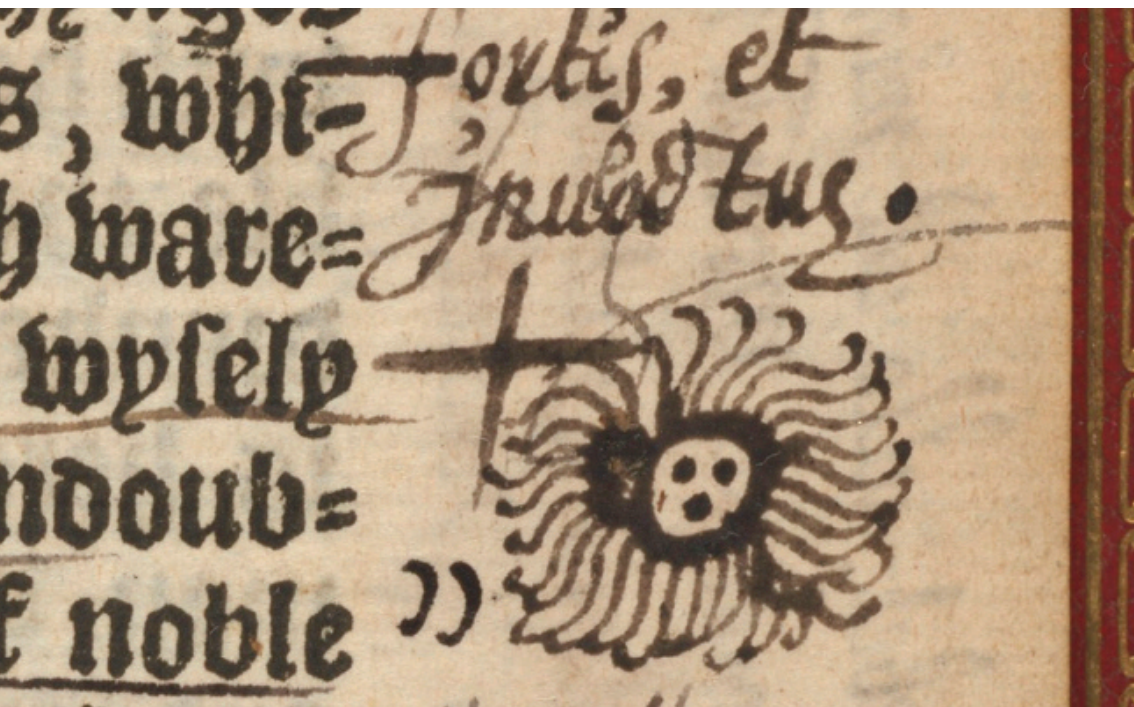 s, whi-
h ware=
wyſely
ndoub=
f noble
fortis, et